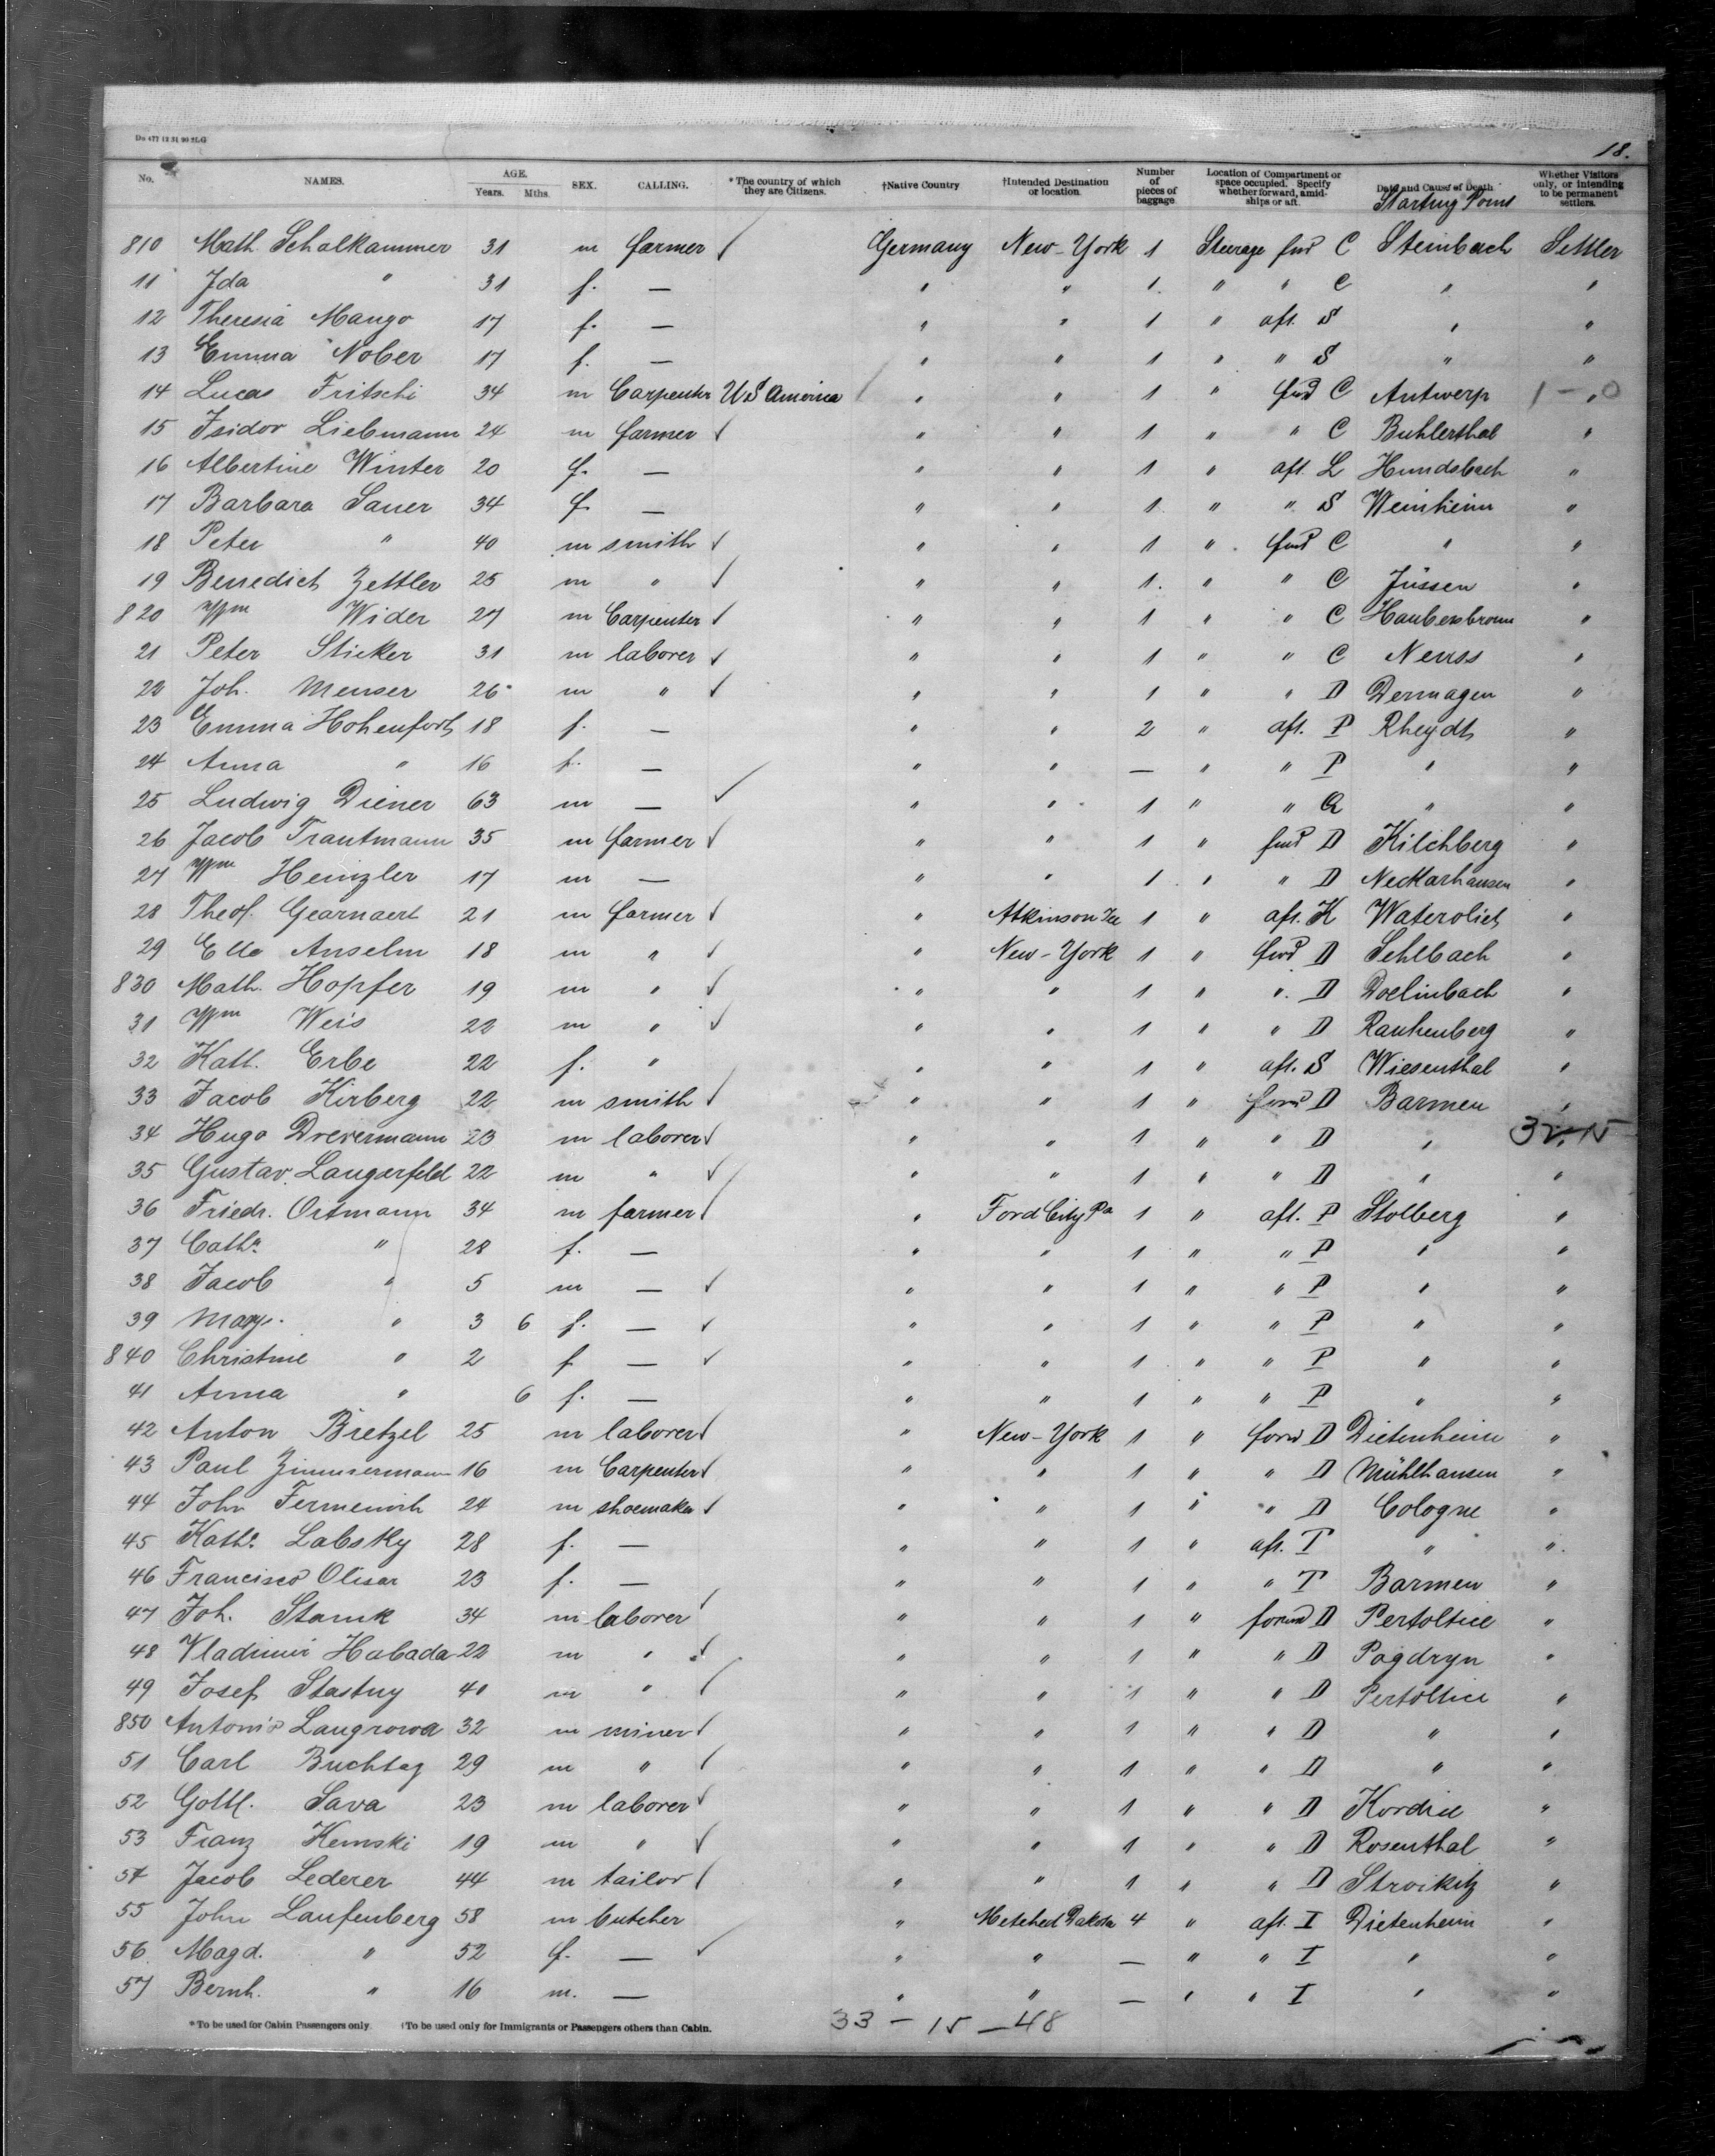 Do 477 12 31 90 2LG
18.
No. NAMES. AGE. Years. Mths. SEX. CALLING. *The country of which they are Citizens. †Native Country †Intended Destination or location. Number of pieces of baggage Location of Compartment or space occupied. Specify whether forward, amid-ships or aft. Date and Cause of Death Starting Point Whether Visitors only, or intending to be permanent settlers.
810 Math. Schalkammer 31 m farmer ✓ Germany New-York 1 Steerage fwd C Steinbach Settler
11 Ida " 31 f. — " " 1. " " C " "
12 Theresia Mango 17 f. — " " 1 " aft. S " "
13 Emma Nober 17 f. — " " 1 " " S " "
14 Lucas Fritschi 34 m Carpenter U S America / " " 1 " fwd C Antwerp 1 – 0 "
15 Isidor Liebmann 24 m farmer ✓ " " 1 " " C Buhlerthal "
16 Albertine Winter 20 f. — " " 1 " aft. L Hundsbach "
17 Barbara Sauer 34 f — " " 1. " " S Weinheim "
18 Peter " 40 m smith ✓ " " 1 " fwd C " "
19 Benedict Zettler 25 m " ✓ " " 1. " " C Jüssen "
820 Wm Wider 27 m Carpenter ✓ " " 1 " " C Haubersbronn "
21 Peter Sticker 31 m laborer ✓ " " 1 " " C Neuss "
22 Joh. Menser 26 m " ✓ " " 1 " " D Dermagen "
23 Emma Hohenforth 18 f. — " " 2 " aft. P Rheydt "
24 Anna " 16 f. — " " — " " P " "
25 Ludwig Diener 63 m — ✓ " " 1 " " Q " "
26 Jacob Trautmann 35 m farmer ✓ " " 1 " fwd D Kilchberg "
27 Wm Heinzler 17 m — " " 1 " " D Neckarhausen "
28 Theof. Gearnaert 21 m farmer ✓ " Atkinson 1 " aft. K Watervliet "
29 Ella Anselm 18 m " ✓ " New-York 1 " fwd D Sehlbach "
830 Math. Hopfer 19 m " ✓ " " 1 " " D Doelinbach "
31 Wm Weis 22 m " ✓ " " 1 " " D Rauhenberg "
32 Kath. Erbe 22 f. " " " 1 " aft. S Wiesenthal "
33 Jacob Kirberg 22 m smith ✓ " " 1 " forwd D Barmen "
34 Hugo Drevermann 23 m laborer ✓ " " 1 " " D " 32-15
35 Gustav. Langerfeld 22 m " ✓ " " 1 " " D " "
36 Friedr. Ortmann 34 m farmer ✓ " Ford City Pa 1 " aft. P Stolberg "
37 Catha " 28 f. — " " 1 " " P " "
38 Jacob " 5 m — ✓ " " 1 " " P " "
39 Mary. " 3 6 f. — ✓ " " 1 " " P " "
840 Christine " 2 f — ✓ " " 1 " " P " "
41 Anna " 6 f. — " " 1 " " P " "
42 Anton Bretzel 25 m laborer ✓ " New-York 1 " forw D Dietenheim "
43 Paul Zimmermann 16 m Carpenter ✓ " " 1 " " D Mühlhausen "
44 John Fermenich 24 m shoemaker ✓ " " 1 " " D Cologne "
45 Katha Labsky 28 f. — " " 1 " aft. T " "
46 Francisco Olisar 23 f. — " " 1 " " T Barmen "
47 Joh. Stanuk 34 m laborer ✓ " " 1 " forwd D Pertoltice "
48 Vladimir Habada 22 m " ✓ " " 1 " " D Pogdryn "
49 Josef Stastny 40 m " ✓ " " 1 " " D Pertoltice "
850 Antonio Langrowa 32 m miner ✓ " " 1 " " D " "
51 Carl Buchtag 29 m " ✓ " " 1 " " D " "
52 Gottl. Sava 23 m laborer ✓ " " 1 " " D Kordic "
53 Franz Kemski 19 m " ✓ " " 1 " " D Rosenthal "
54 Jacob Lederer 44 m tailor ✓ " " 1 " " D Stroikitz "
55 John Laufenberg 58 m butcher " Metched Dakota 4 " aft. I Dietenheim "
56. Magd. " 52 f. — ✓ " " — " " I " "
57 Bernh. " 16 m. — " " — " " I " "
*To be used for Cabin Passengers only. †To be used only for Immigrants or Passengers others than Cabin.
33 – 15 – 48